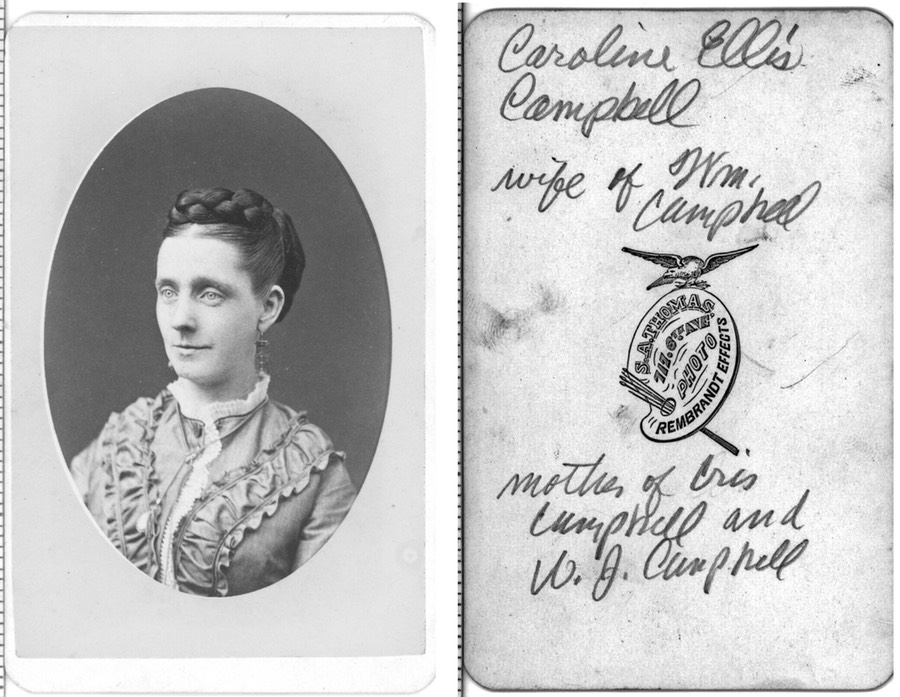 Caroline Ellis
Campbell
wife of Wm.
Campbell
S.A. THOMAS
717. 6TH AVE.
PHOTO
REMBRANDT EFFECTS
mother of Cris
Campbell and
W. J. Campbell